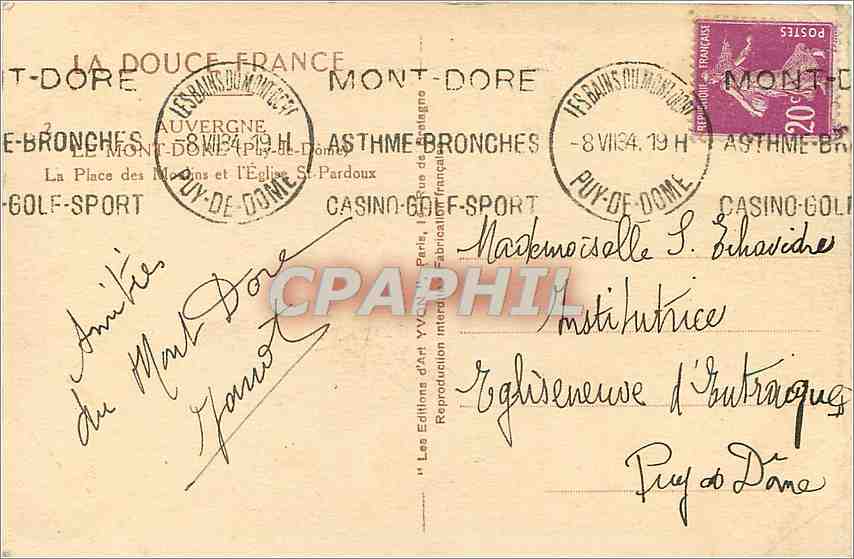 LA DOUCE FRANCE
T-DORE
LES BAINS DU MONT-DORE
-8 VII 34. 19 H
PUY-DE-DOME
MONT-DORE
LES BAINS DU MONT-DORE
-8 VII 34. 19 H
PUY-DE-DOME
MONT-D
POSTES
REPUBLIQUE FRANÇAISE
20c
2. AUVERGNE
E-BRONCHES
ASTHME-BRONCHES
ASTHME-BR
LE MONT-DORE (Puy-de-Dôme)
La Place des Moulins et l'Église St-Pardoux
-GOLF-SPORT
CASINO-GOLF-SPORT
CASINO-GOL
Amitiés
du Mont Dore
"Les Editions d'Art YVON" Paris, Rue de Bretagne
Reproduction interdite Fabrication française
Mademoiselle S.
Institutrice
Egliseneuve d'Entraigues
Puy de Dôme
CPAPHIL